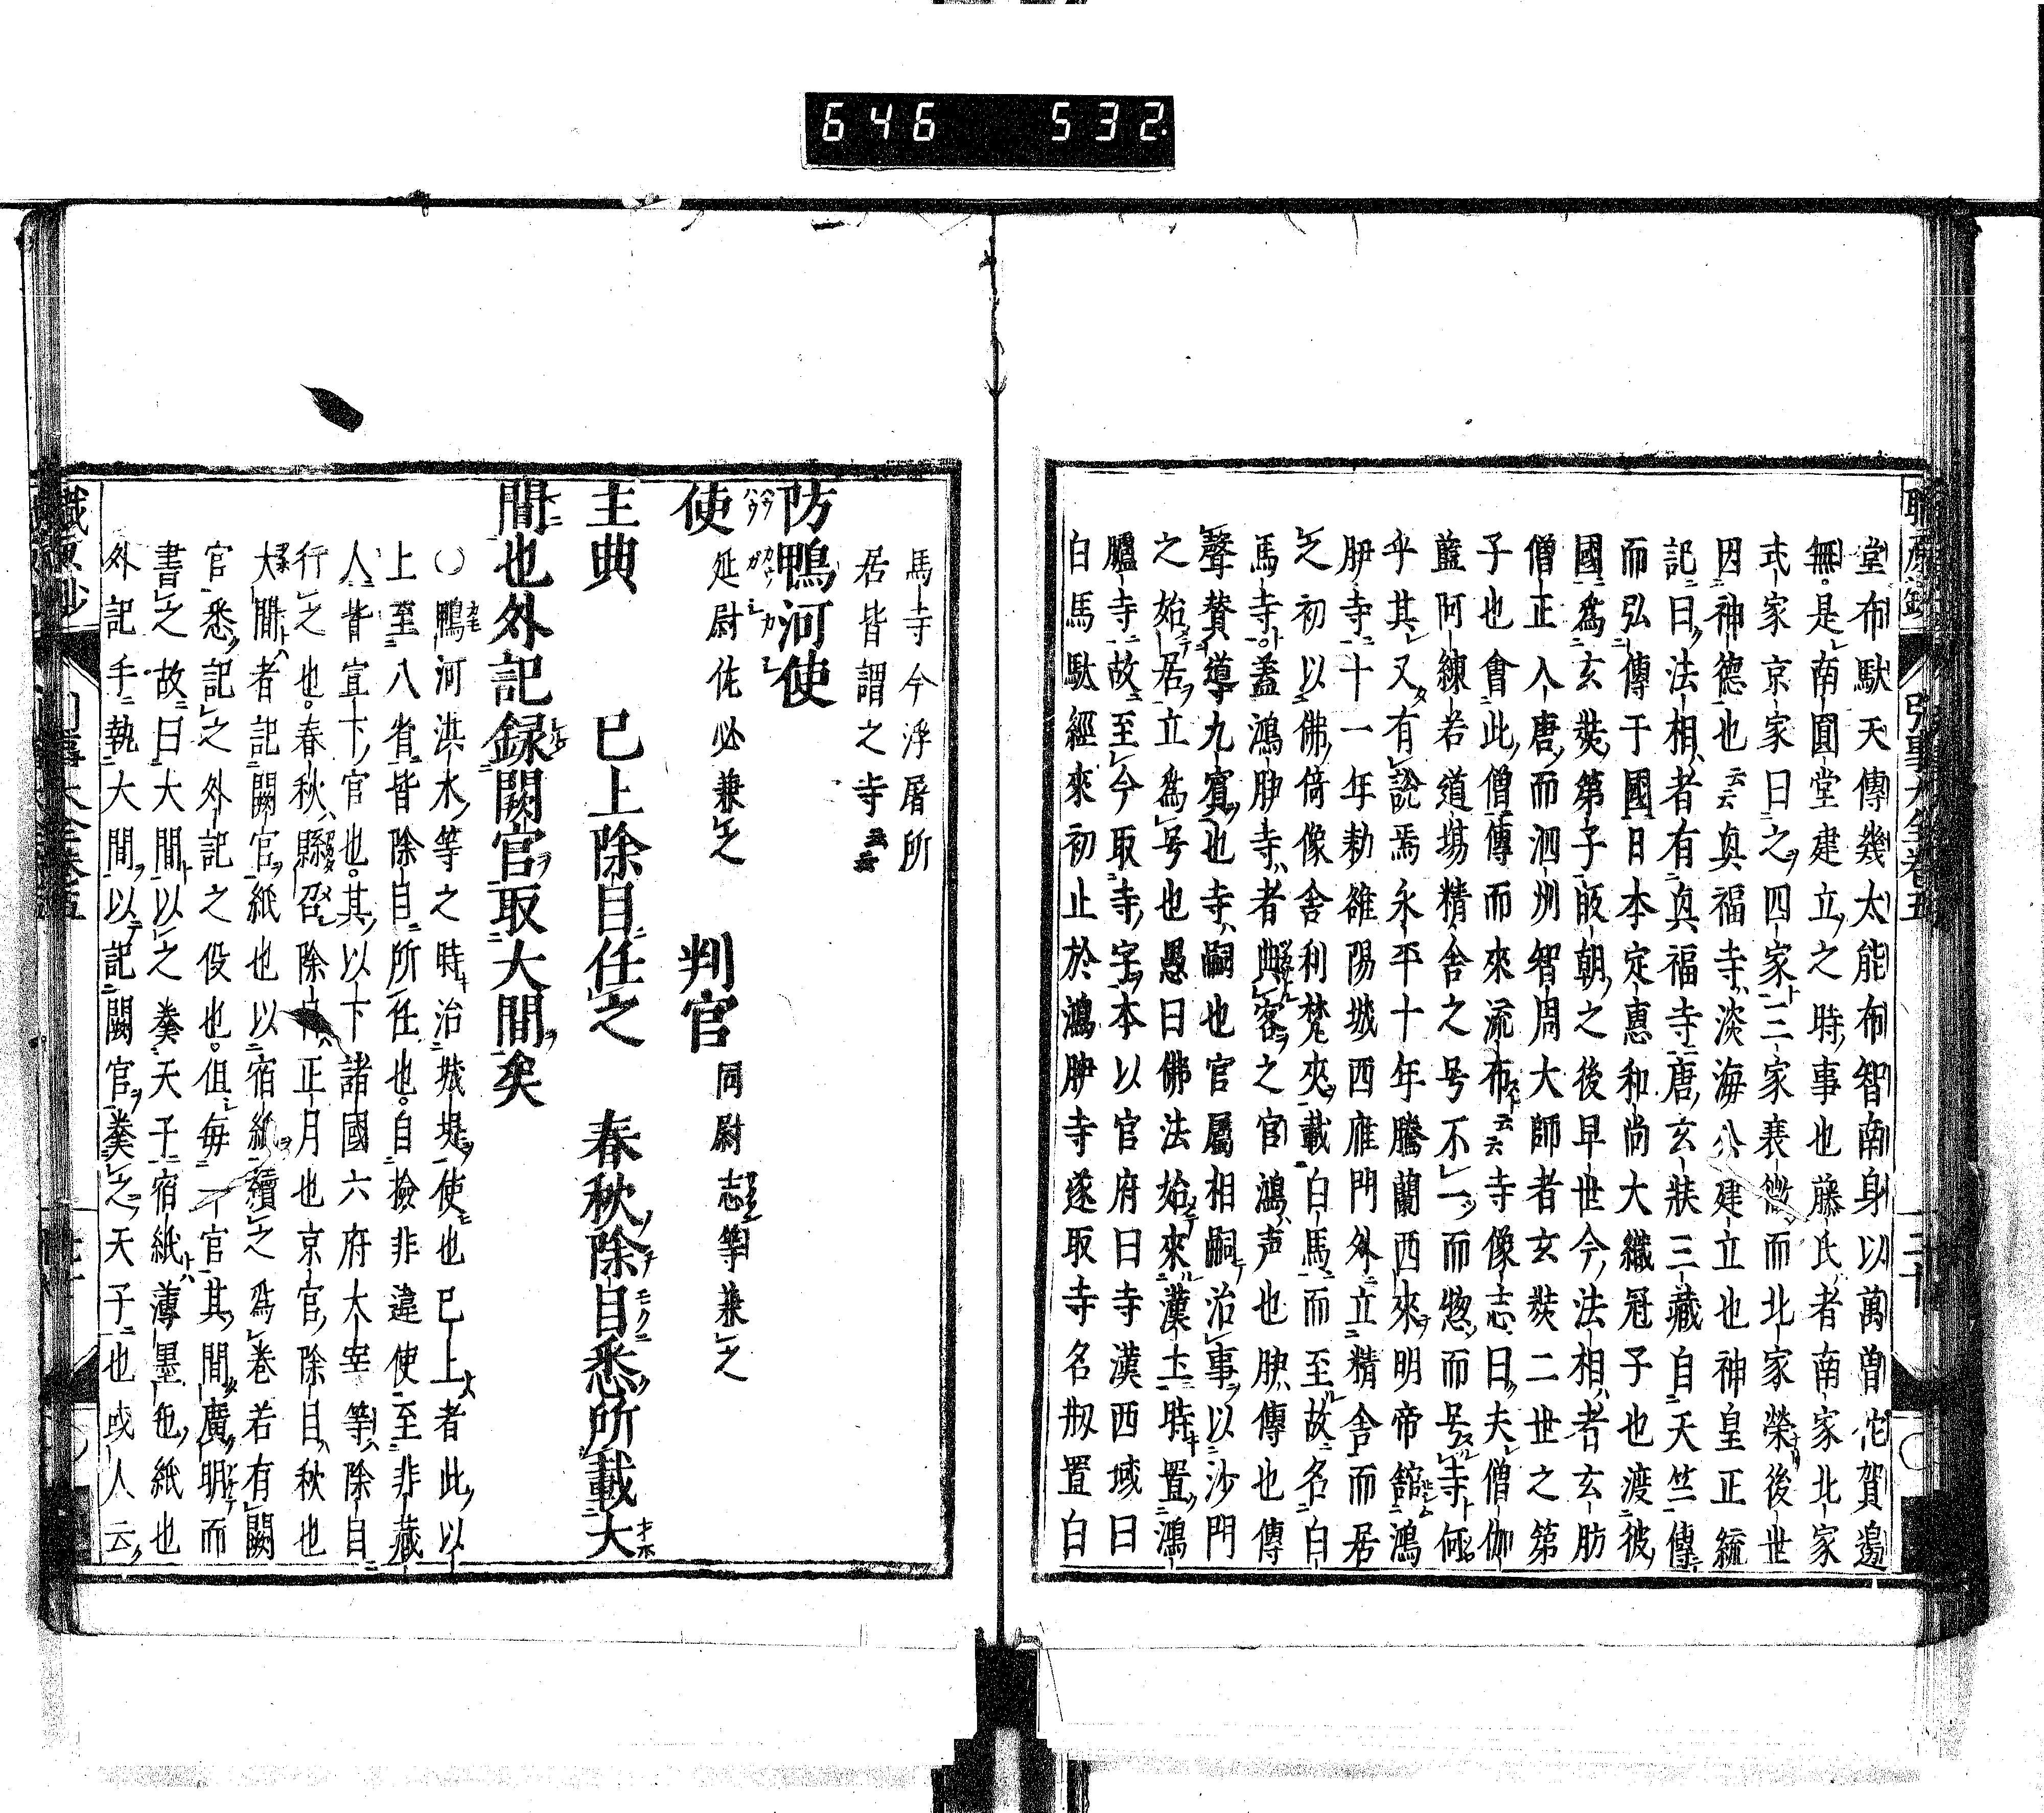 646 532
堂布馱天傳幾太能布智南身以萬曽佗賀邊
無是南圓堂建立之時事也藤氏者南家北家
式家京家曰之四家三家衰微而北家榮後世
因神德也云云真福寺淡海公建立也神皇正統
記曰法相者有真福寺唐玄奘三藏自天竺傳
國為玄奘第子皈朝之後早世今法相者玄肪
而弘傳于國日本定惠和尚大織冠子也渡彼
僧正入唐而泗洲智周大師者玄奘二世之第
子也會此僧傳而來流布云云寺像志曰夫僧伽
藍阿練若道場精舍之号不一而惣而号寺何
乎其又有說焉永平十年騰蘭西來明帝舘鴻
胪寺十一年勅雒陽城西雍門外立精舍而居
之初以佛倚像舍利梵夾載白馬而至故名白
馬寺蓋鴻胪寺者典客之官鴻声也胪傳也傳
聲贊導九賓也寺嗣也官屬相嗣治事以沙門
之始居立為号也愚曰佛法始來漢土時置鴻
臚寺故至今取寺字本以官府曰寺漢西域曰
白馬馱經來初止於鴻胪寺遂取寺名剏置白
馬寺今浮屠所
居皆謂之寺云云
防鴨河使
使 延尉佐必兼之 判官 同尉志等兼之
主典 已上除目任之 春秋除目悉所載大
間也外記録闕官取大間矣
○鴨河洪水等之時治城堤使也已上者此以
上至八省皆除目所任也自撿非違使至非藏
人皆宣下官也其以下諸國六府大宰等除目
行之也春秋縣召除目正月也京官除目秋也
大間者記闕官紙也以宿紙續之為巻若有闕
官悉記之外記之役也但毎一官其間廣明而
書之故曰大間以之奏天子宿紙薄墨也紙也
外記手執大間以記闕官奏之天子也或人云